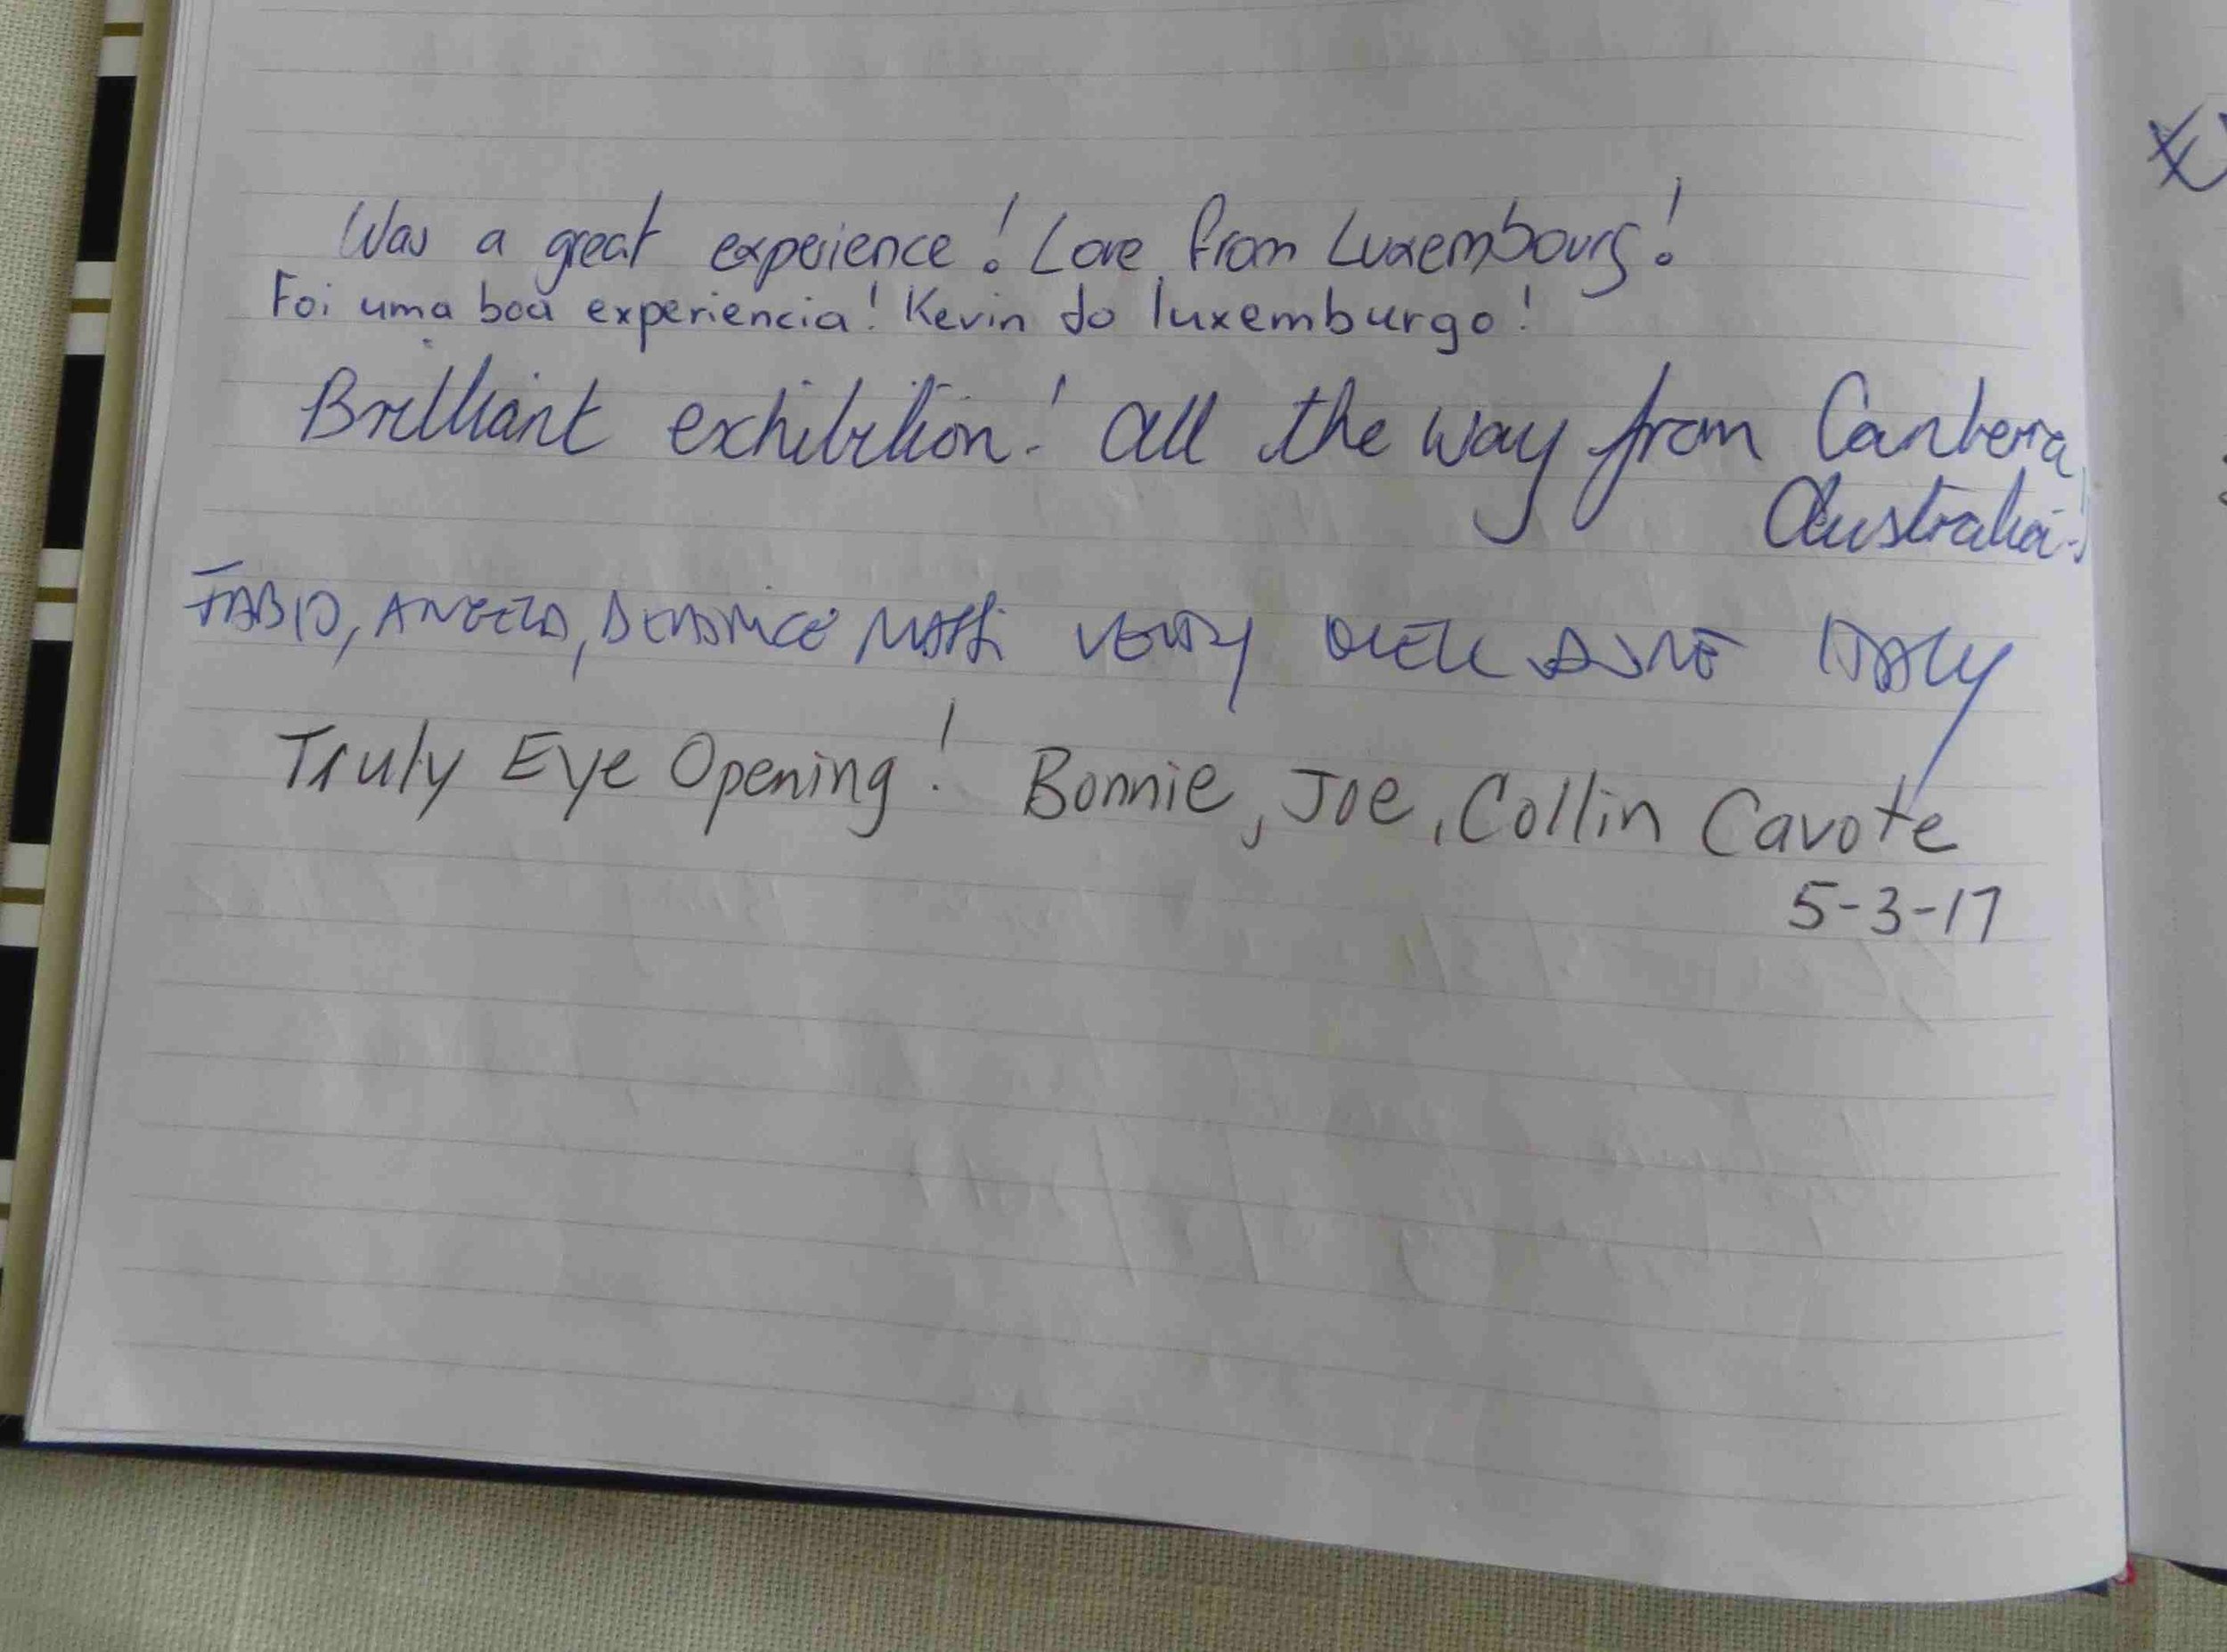 Was a great experience! Love from Luxembourg!
Foi uma boa experiencia! Kevin do luxemburgo!
Brilliant exhibition! All the way from Canberra,
Australia!
FABIO, ANGELA, BEATRICE VERY ITALY
Truly Eye Opening! Bonnie, Joe, Collin Cavote
5-3-17